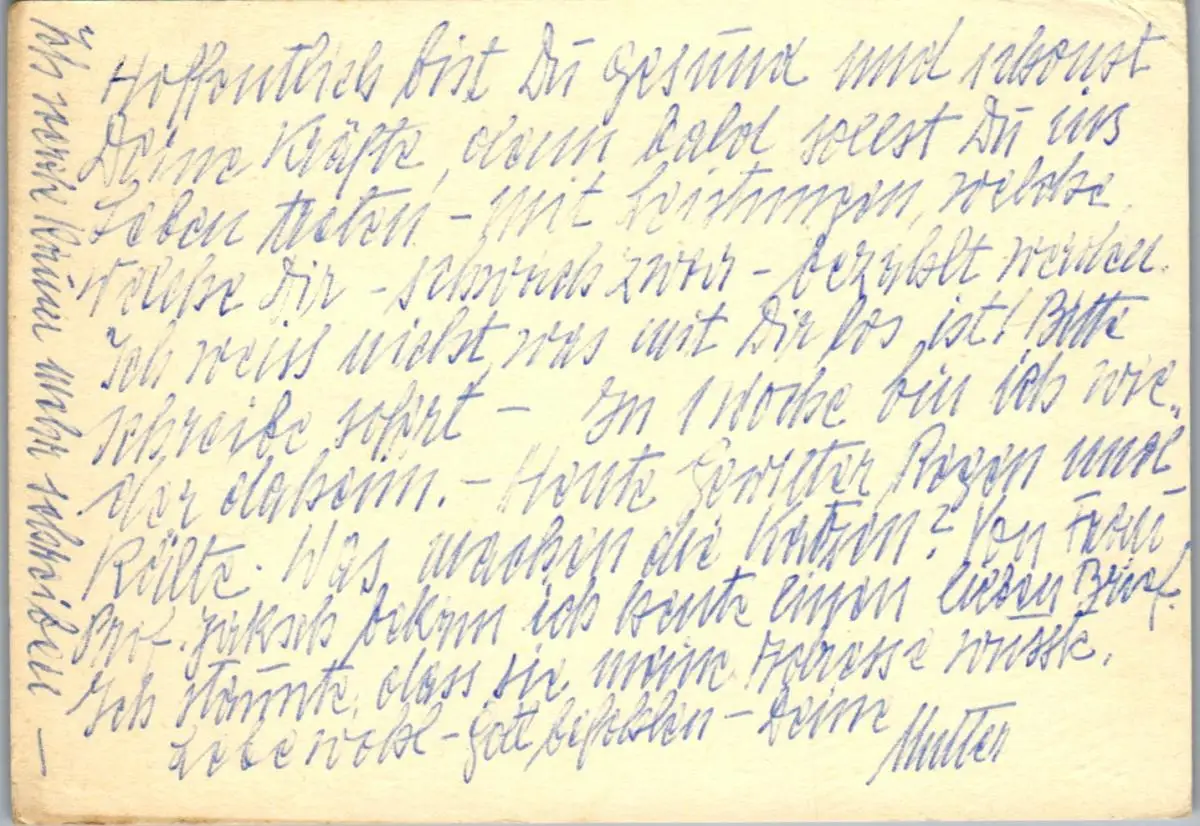 Hoffentlich bist Dū gesūnd und schonst
Deine Kräfte, denn bald sollst Dū ins
Leben treten – mit Leistungen, welche,
welche Dir – schwach zwar – bezahlt werden.
Ich weiss nicht, was mit Dir los ist! Bitte
schreibe sofort – In 1 Woche bin ich wie„
der daheim. – Heute Gewitter Regen und
Kälte. Was machen die Katzen? Von Fraū
Prof. Jaksch bekam ich heute einen lieben Brief.
Ich staūnte, dass sie meine Adresse wüsste.
Lebe wohl – Gott befohlen – Deine
Mutter
Ich werde kaum mehr schreiben –